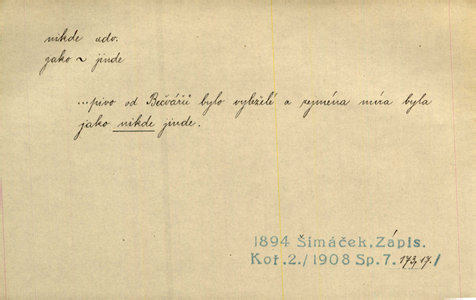 nikde adv.
jako ~ jinde
...pivo od Bečvářů bylo vyleželé a zejména míra byla
jako nikde jinde.
1894 Šimáček, Zápis.
Kot.2./1908 Sp.7. 173,17./